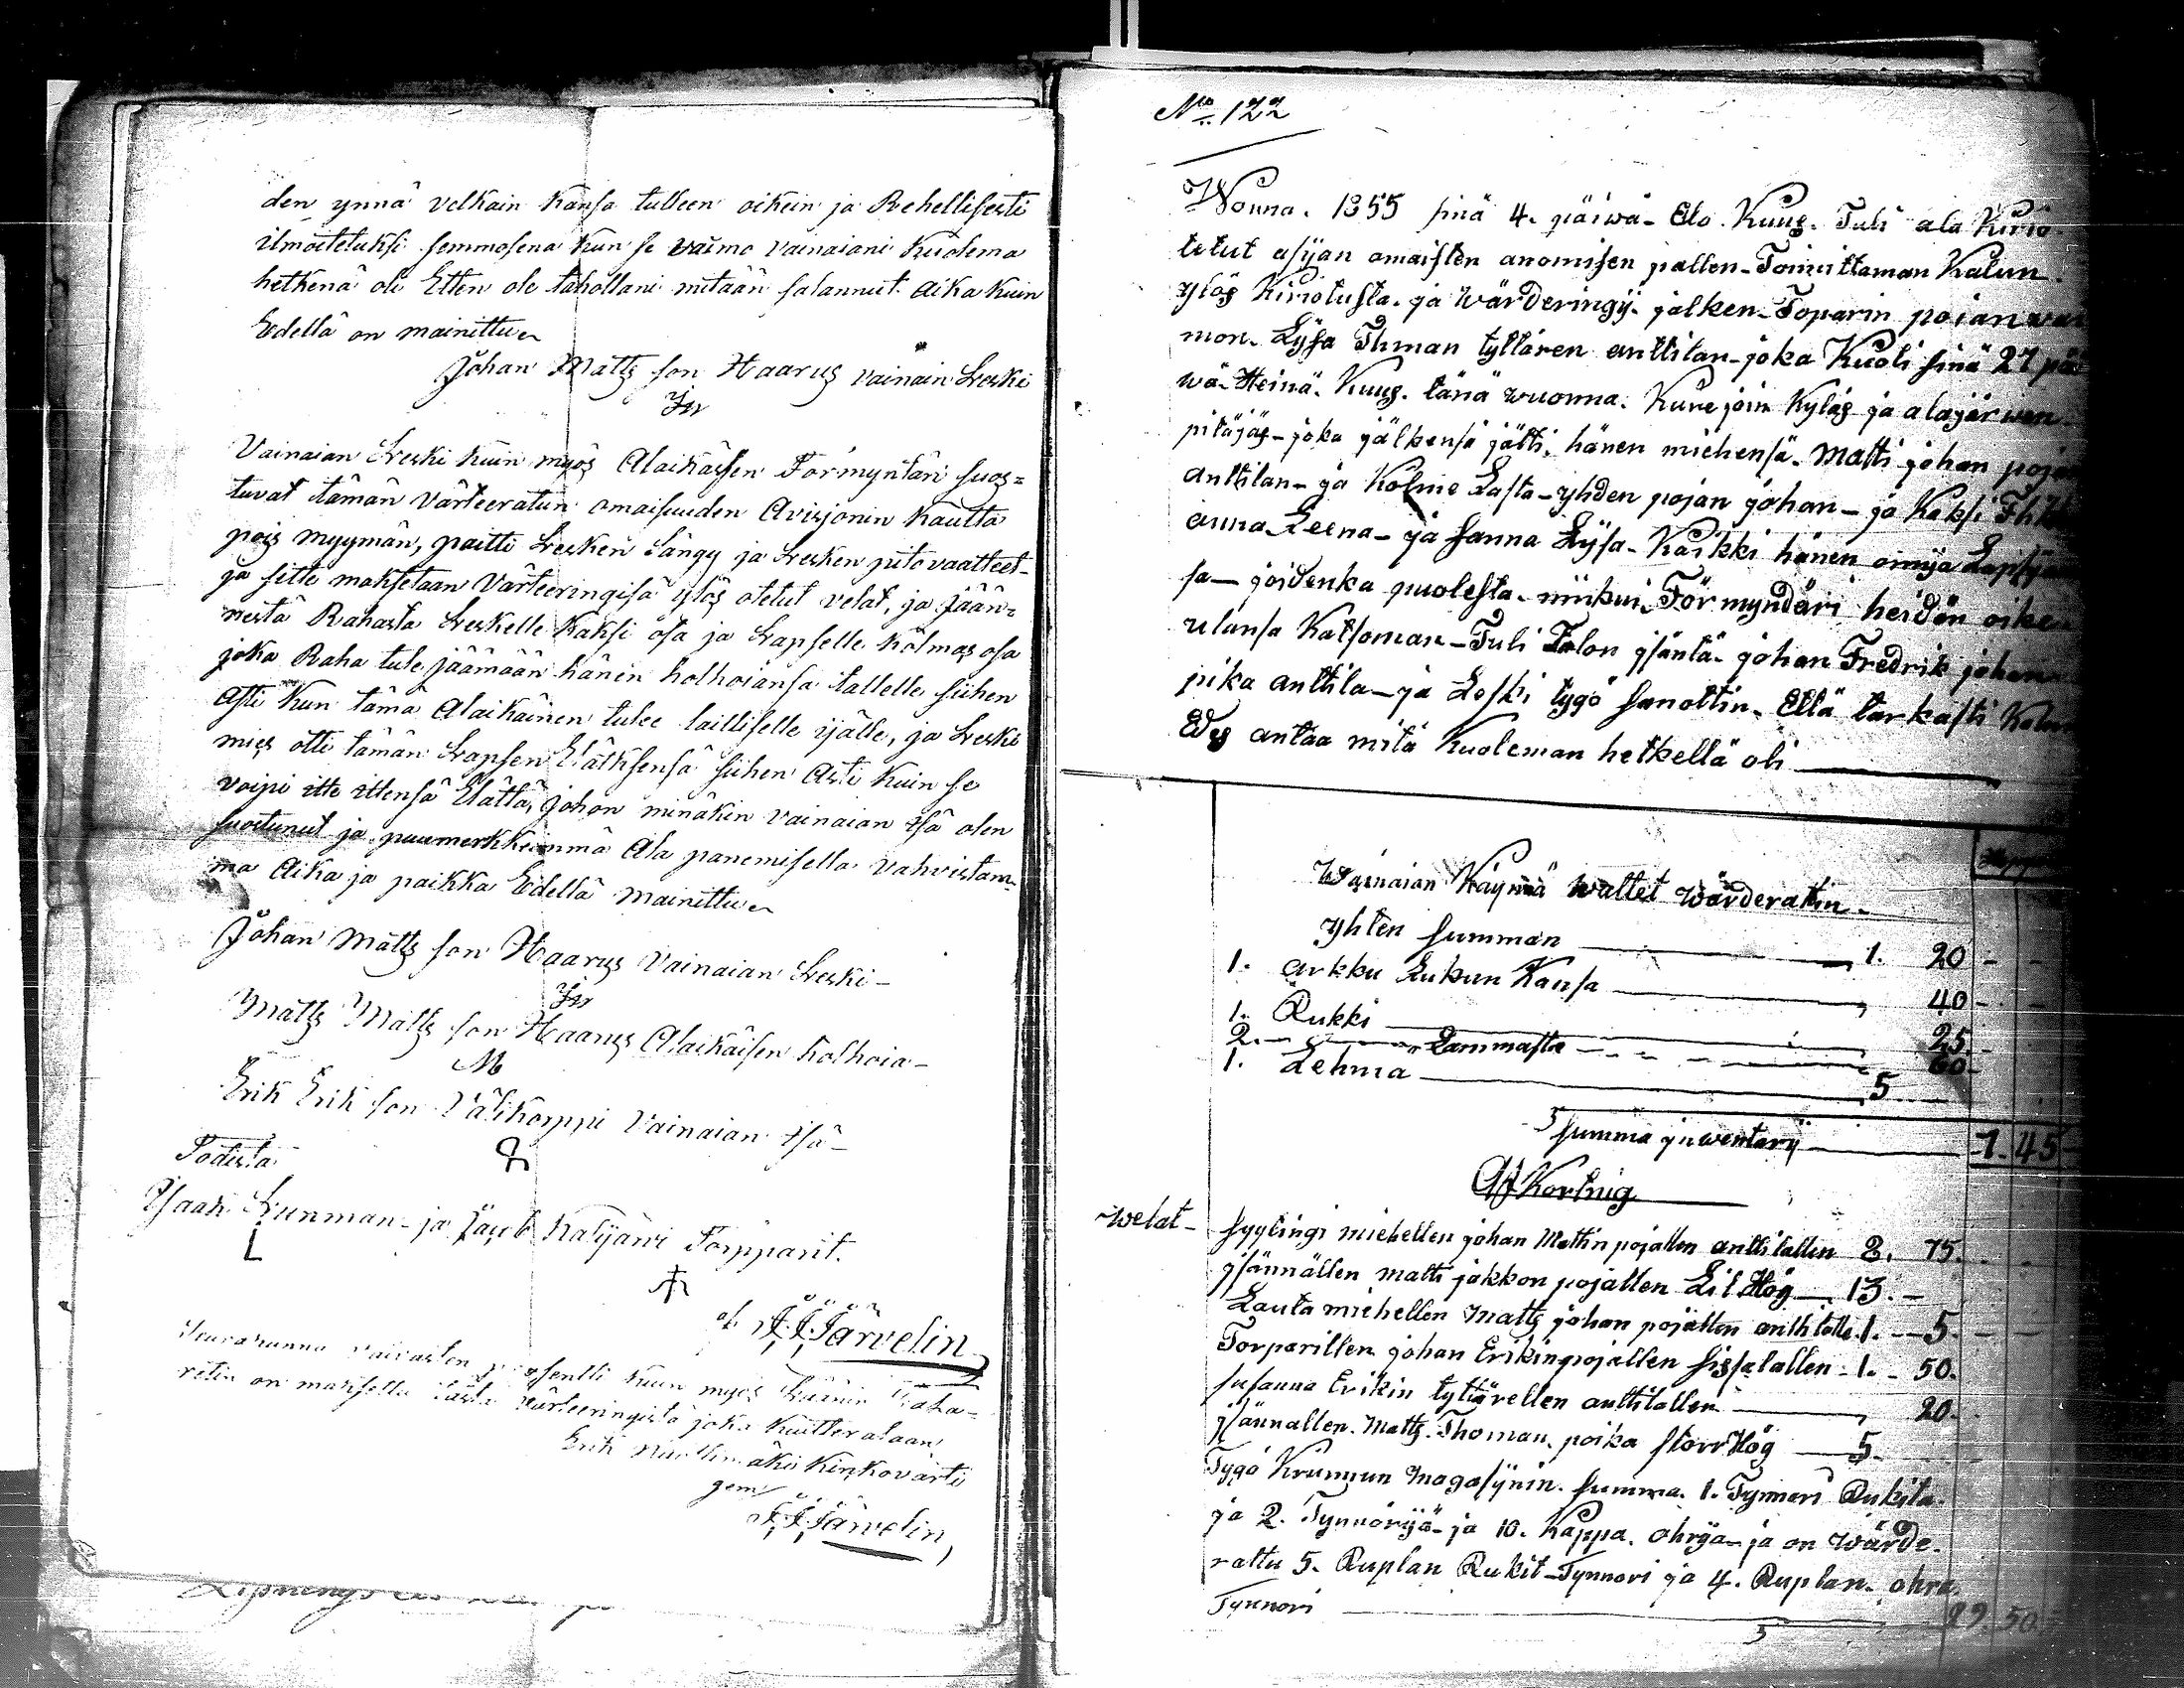 den ynnä velkain kansa tulleen oikein ja Rehellisesti
ilmoitetuksi semmosena kun se vaimo vainaiani kuolema
hetkenä oli Etten ole tahollani mitään salannut aika kuin
Edellä on mainittu
Johan Matts son Haarus vainain Leski
Vainaian Leski kuin myös Alaikäsen Förmyntäri suos=
tuvat tämän värteeratun omaisuuden Avisjonin kautta
pois myymän, paitti Lesken sängy ja Lesken pitovaatteet
ja sitte maksetaan Värteeringisä ylös otetut velat, ja jään=
nestä Rahasta Leskelle kaksi osa ja Lapselle kolmas osa
joka Raha tule jäämään hänen holhoiansa tallelle siihen
asti kun tämä Alaikäinen tulee lailliselle ijälle, ja Leski
mies otti tämän Lapsen Elätiksensä siihen Asti kuin se
voipi itte ittensä Elättä, johon minäkin vainaian isä olen
suostunut ja puumerkkeimmä Ala panemisella vahvistam=
ma Aika ja paikka Edellä mainittu
Johan Matts son Haarus Vainaian Leski-
Matts Matts son Haarus Alaikäisen holhoia-
M
Erik Erik son Välikorppi Vainaian isä-
Todista
Isaak Lunman- ja Jacob Katijärvi Torpparit.
L
af J. J. Järvelin
Seurakunna vaivasten prosentti kuun myös Läänin Raha=
retin on maksettu tästä Värteeringistä joka kuitterataan
Erik kirkovärti
gem
J. J. Järvelin
No 122
Wonna. 1855 sinä 4. päiwä- Elo. Kuus. Tuli ala Kirio-
tetut asijan omaisten anomisen pällen- Toimittaman Kalun
ylös Kiriotusta. ja Wärderingij. jälken- Toparin pojan wai
mon. Lijsa Thman tyttären anttilan- joka Kuoli sinä 27 päi
wä- Heinä. Kuus. tänä wuonna. Kurejoin Kyläs ja alajärwen
pitäjäs- joka jälkensä jätti. hänen miehensä. Matti johan pojan
anttilan- ja Kolme Lasta- yhden pojan johan- ja Kaksi
anna Leena- ja sanna Lijsa- Kaikki hänen omija
sa- joidenka puolesta. niinkui. Förmyndäri heidän oike
ulansa Katsoman- Tuli Talon isäntä- johan Fredrik johan
pika anttila- ja Leski tygö sanottin. Että tarkasti
Edes antaa mitä Kuoleman hetkellä oli
Wainaian Käymä wattet wärderattin-
yhten summan 1. 20
1. arkku Lukun Kansa 40
1. Rukki 25
2. Lammasta 60
1. Lehmä 5
summa inwentarij 7. 45
Af Kortnig
welat- syytingi miehellen johan Mattin pojallen anttilallen 2. 75.
isännällen matti jakkon pojallen Lil Hög 13. -
Lauta miehellen Matts johan pojallen anttilalle 1. - 5.
Torparillen johan Erikinpojallen sissalallen 1. 50.
susanna Erikin tyttärellen anttilallen 20.
isännallen. Matts. Thoman. poika storr Hög 5.
Tygö Krunnun magasijnin. summa. 1. Tynnori Rukita.
ja 2. Tynnörijä- ja 10. Kappa. ohrija- ja on wärde-
rattu 5. Ruplan Rukit- Tynnori ja 4. Ruplan. ohra
Tynnori 29. 50